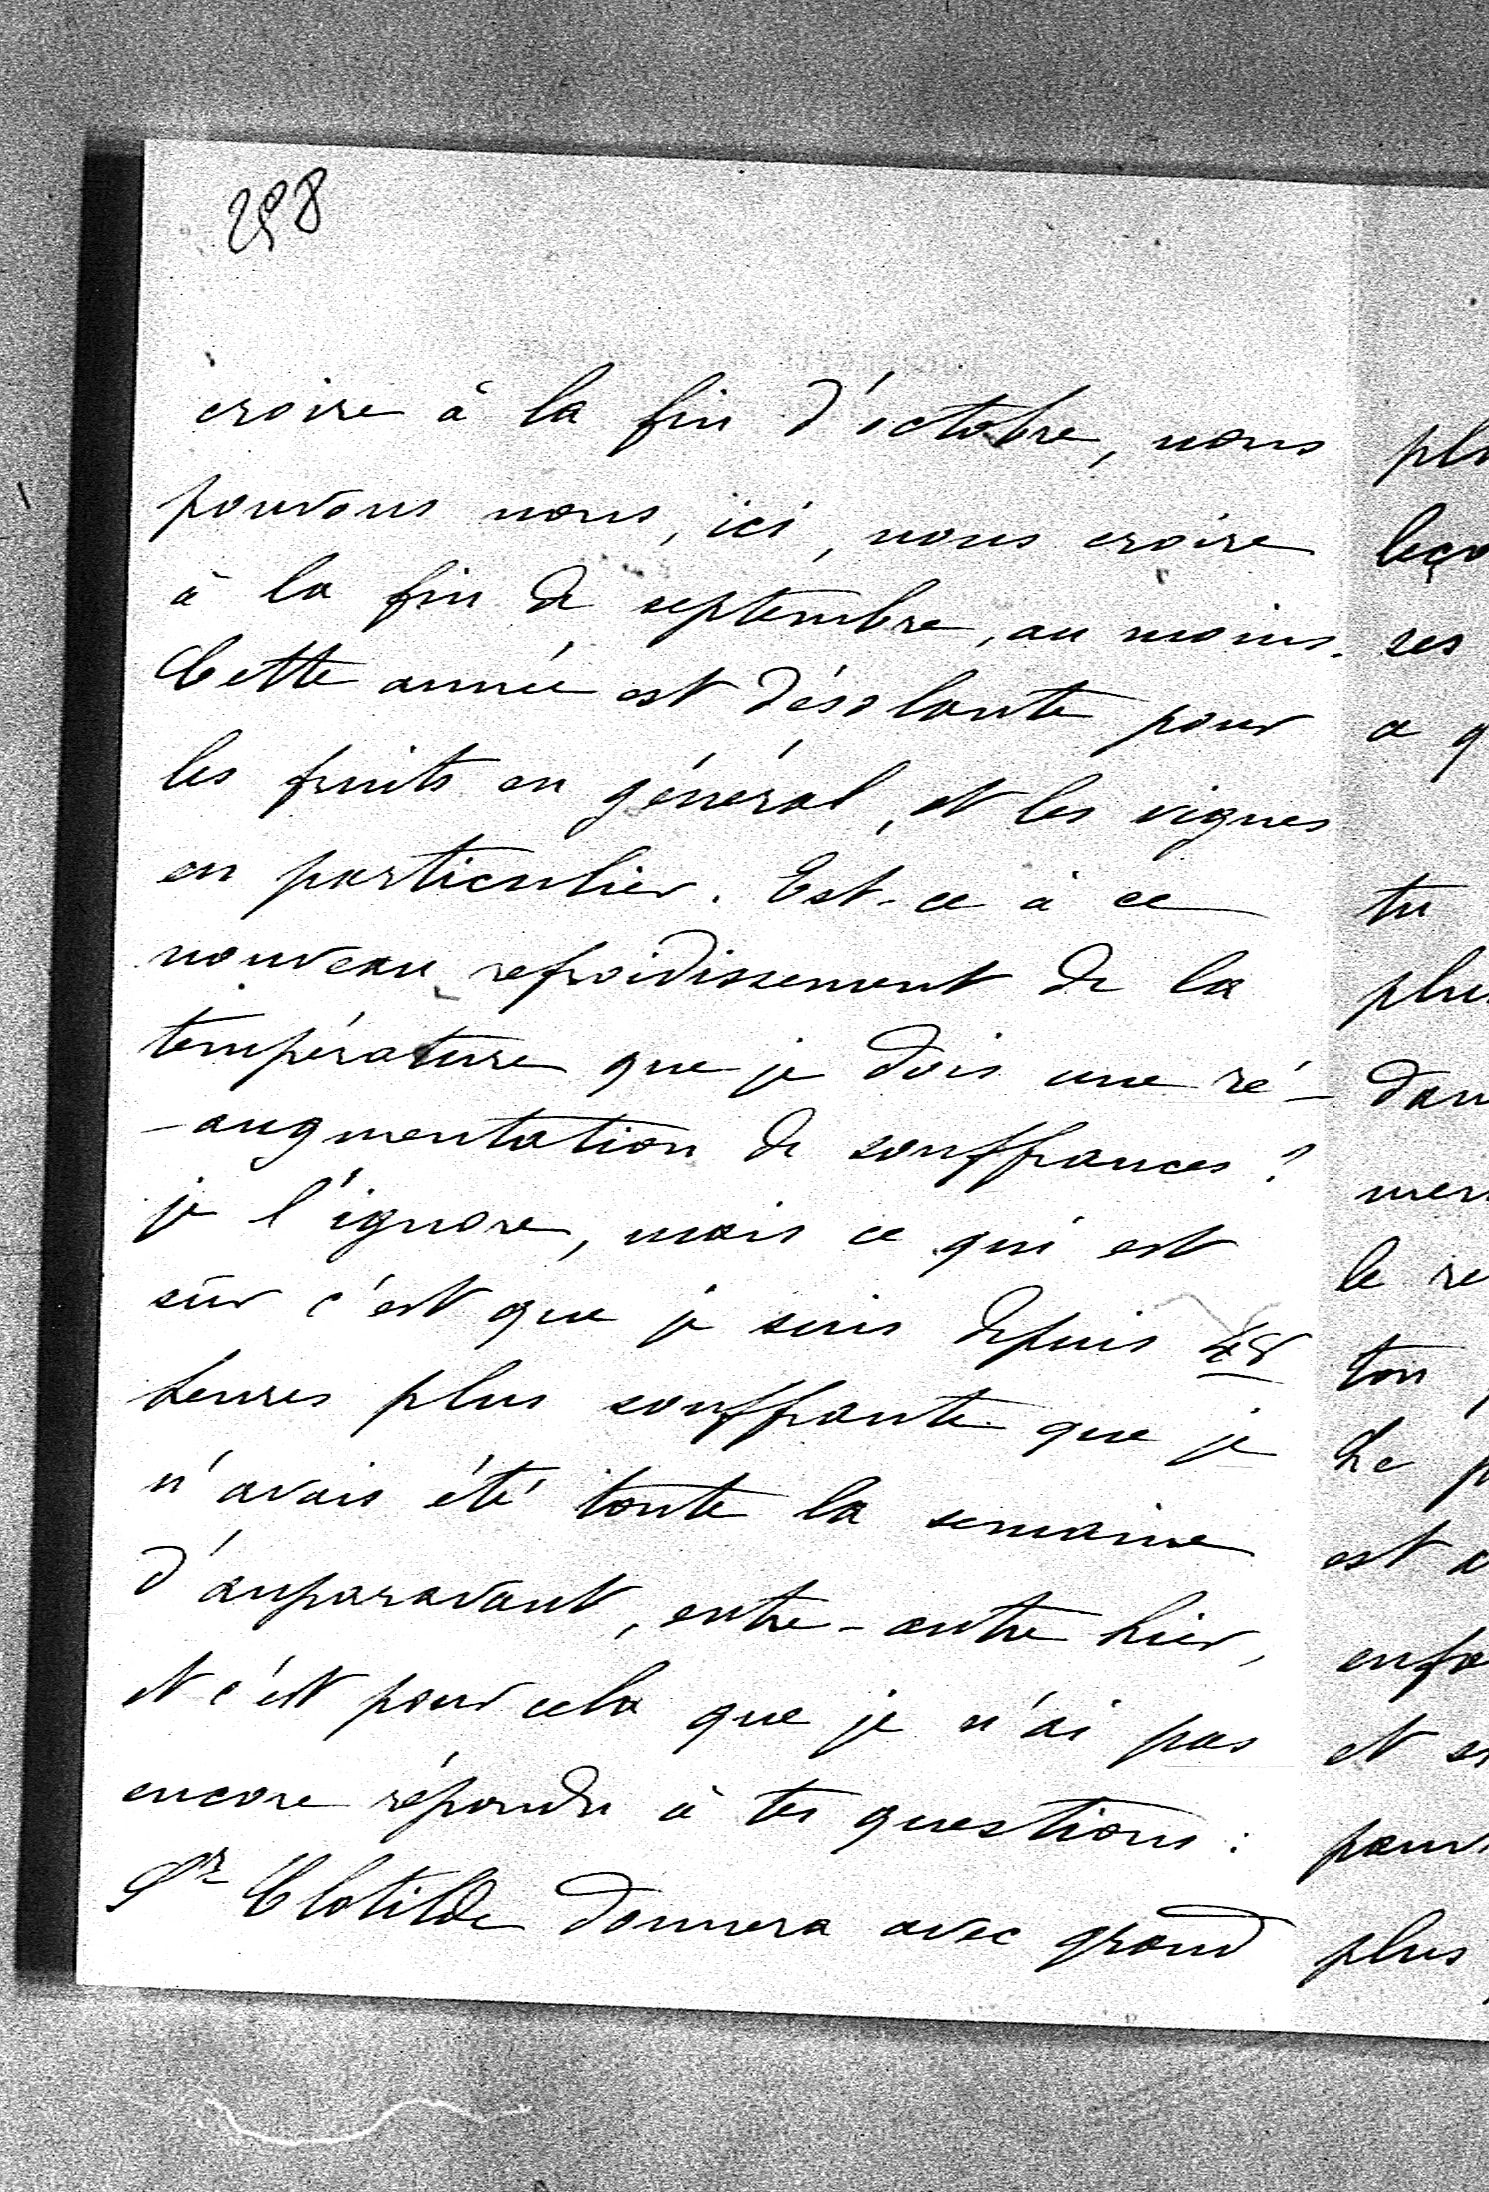 298
croire à la fin d'octobre, nous
pouvons nous, ici, nous croire
à la fin de septembre, au moins.
Cette année est désolante pour
les fruits en général, et les vignes
en particulier. Est-ce à ce
nouveau refroidissement de la
température que je dois une ré-
-augmentation de souffrances ?
je l'ignore, mais ce qui est
sûr c'est que je suis depuis 48
heures plus souffrante que je
n'avais été toute la semaine
d'auparavant, entre-autre hier,
et c'est pour cela que je n'ai pas
encore répondu à tes questions :
Sr Clotilde donnera avec grand